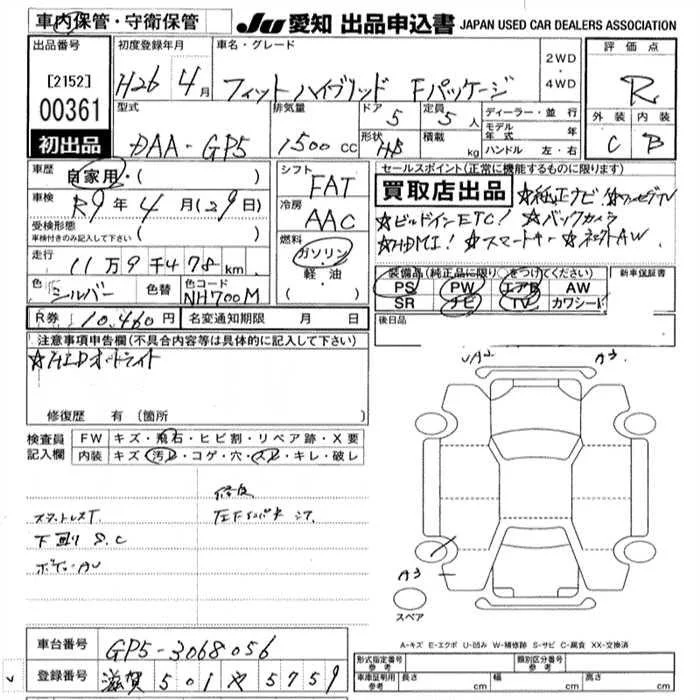 車内保管・守衛保管
JU 愛知 出品申込書 JAPAN USED CAR DEALERS ASSOCIATION
出品番号 初度登録年月 車名・グレード 2WD・4WD 評価点
[2152] H26年4月 フィットハイブリッド Fパッケージ R
00361 型式 排気量 ドア 定員 ディーラー・並行 外装 内装
初出品 DAA-GP5 1500cc 5 5人 モデル年式 年 C B
形状 HB 積載 kg ハンドル 左・右
車歴 自家用・( ) シフト FAT セールスポイント(正常に機能するものに限ります)
車検 R9年4月(29日) 冷房 AAC 買取店出品 ☆純正ナビ!☆フルセグTV
受検形態 車検付きのみ記入して下さい ( ) ☆ビルドインETC! ☆バックカメラ
燃料 ガソリン・軽・油・( ) ☆HDMI! ☆スマートキー ☆ AW
走行 11万9千478km 装備品(純正品に限り○をつけてください) 新車保証書
色 シルバー 色替 色コード NH700M PS PW エアB AW
SR ナビ TV カワシート
R券 10,460円 名変通知期限 月 日 後日品
注意事項申告欄(不具合内容等は具体的に記入して下さい)
☆HIDオートライト
修復歴 有 (箇所
UA2 A3
検査員記入欄 FW キズ・飛石・ヒビ割・リペア跡・X要
内装 キズ・汚レ・コゲ・穴・スレ・キレ・破レ
下廻り S.C
A3
スペア
A-キズ E-エクボ U-凹み W-補修跡 S-サビ C-腐食 XX-交換済
車台番号 GP5-3068056
登録番号 滋賀 501 や 5759
型式指定番号 参考 類別区分番号 参考
車庫証明用 参考 長さ cm 幅 cm 高さ cm